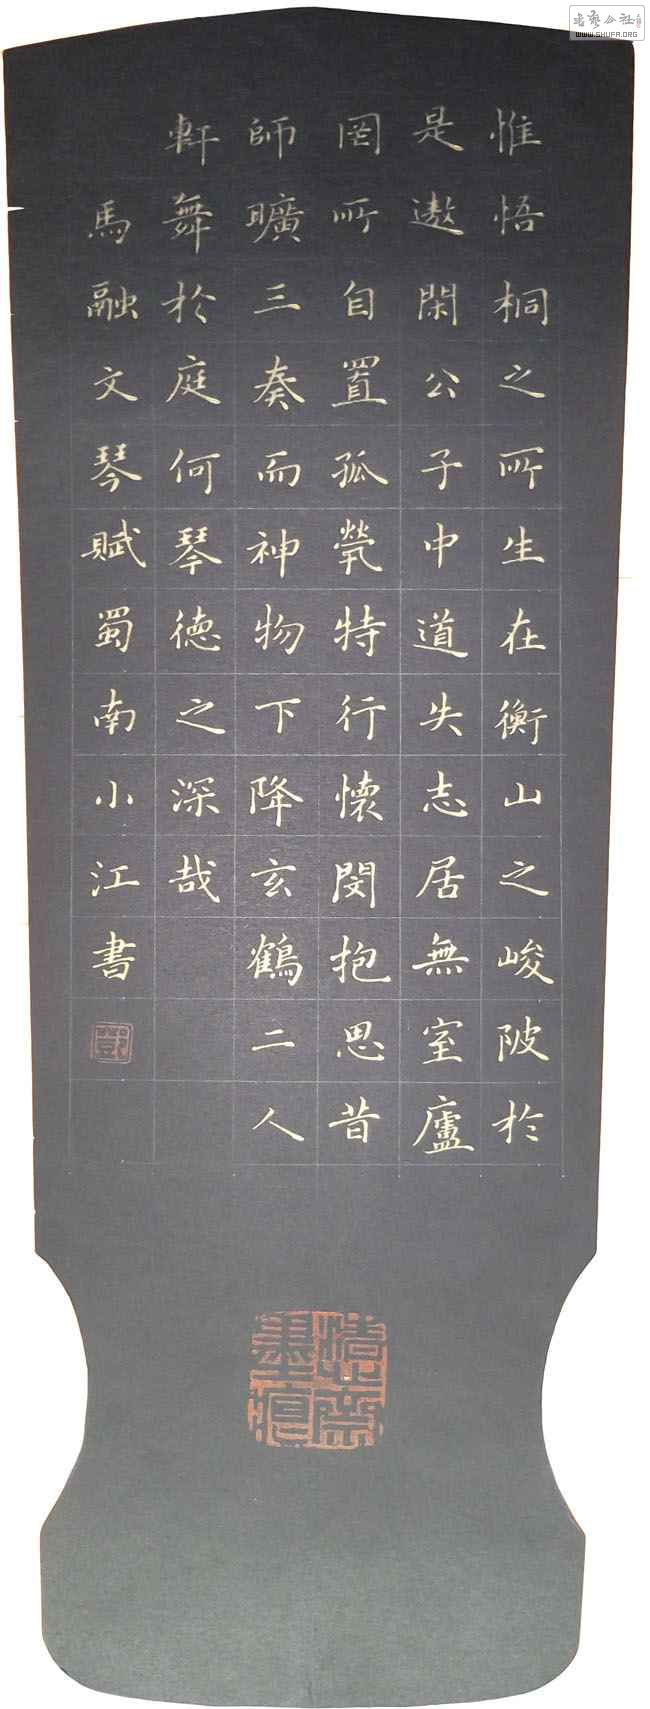 惟悟桐之所生在衡山之峻陂於
是遨閑公子中道失志居無室廬
罔所自置孤煢特行懷閔抱思昔
師曠三奏而神物下降玄鶴二人
軒舞於庭何琴德之深哉
馬融文琴賦蜀南小江書
書藝公社
WWW.SHUFA.ORG